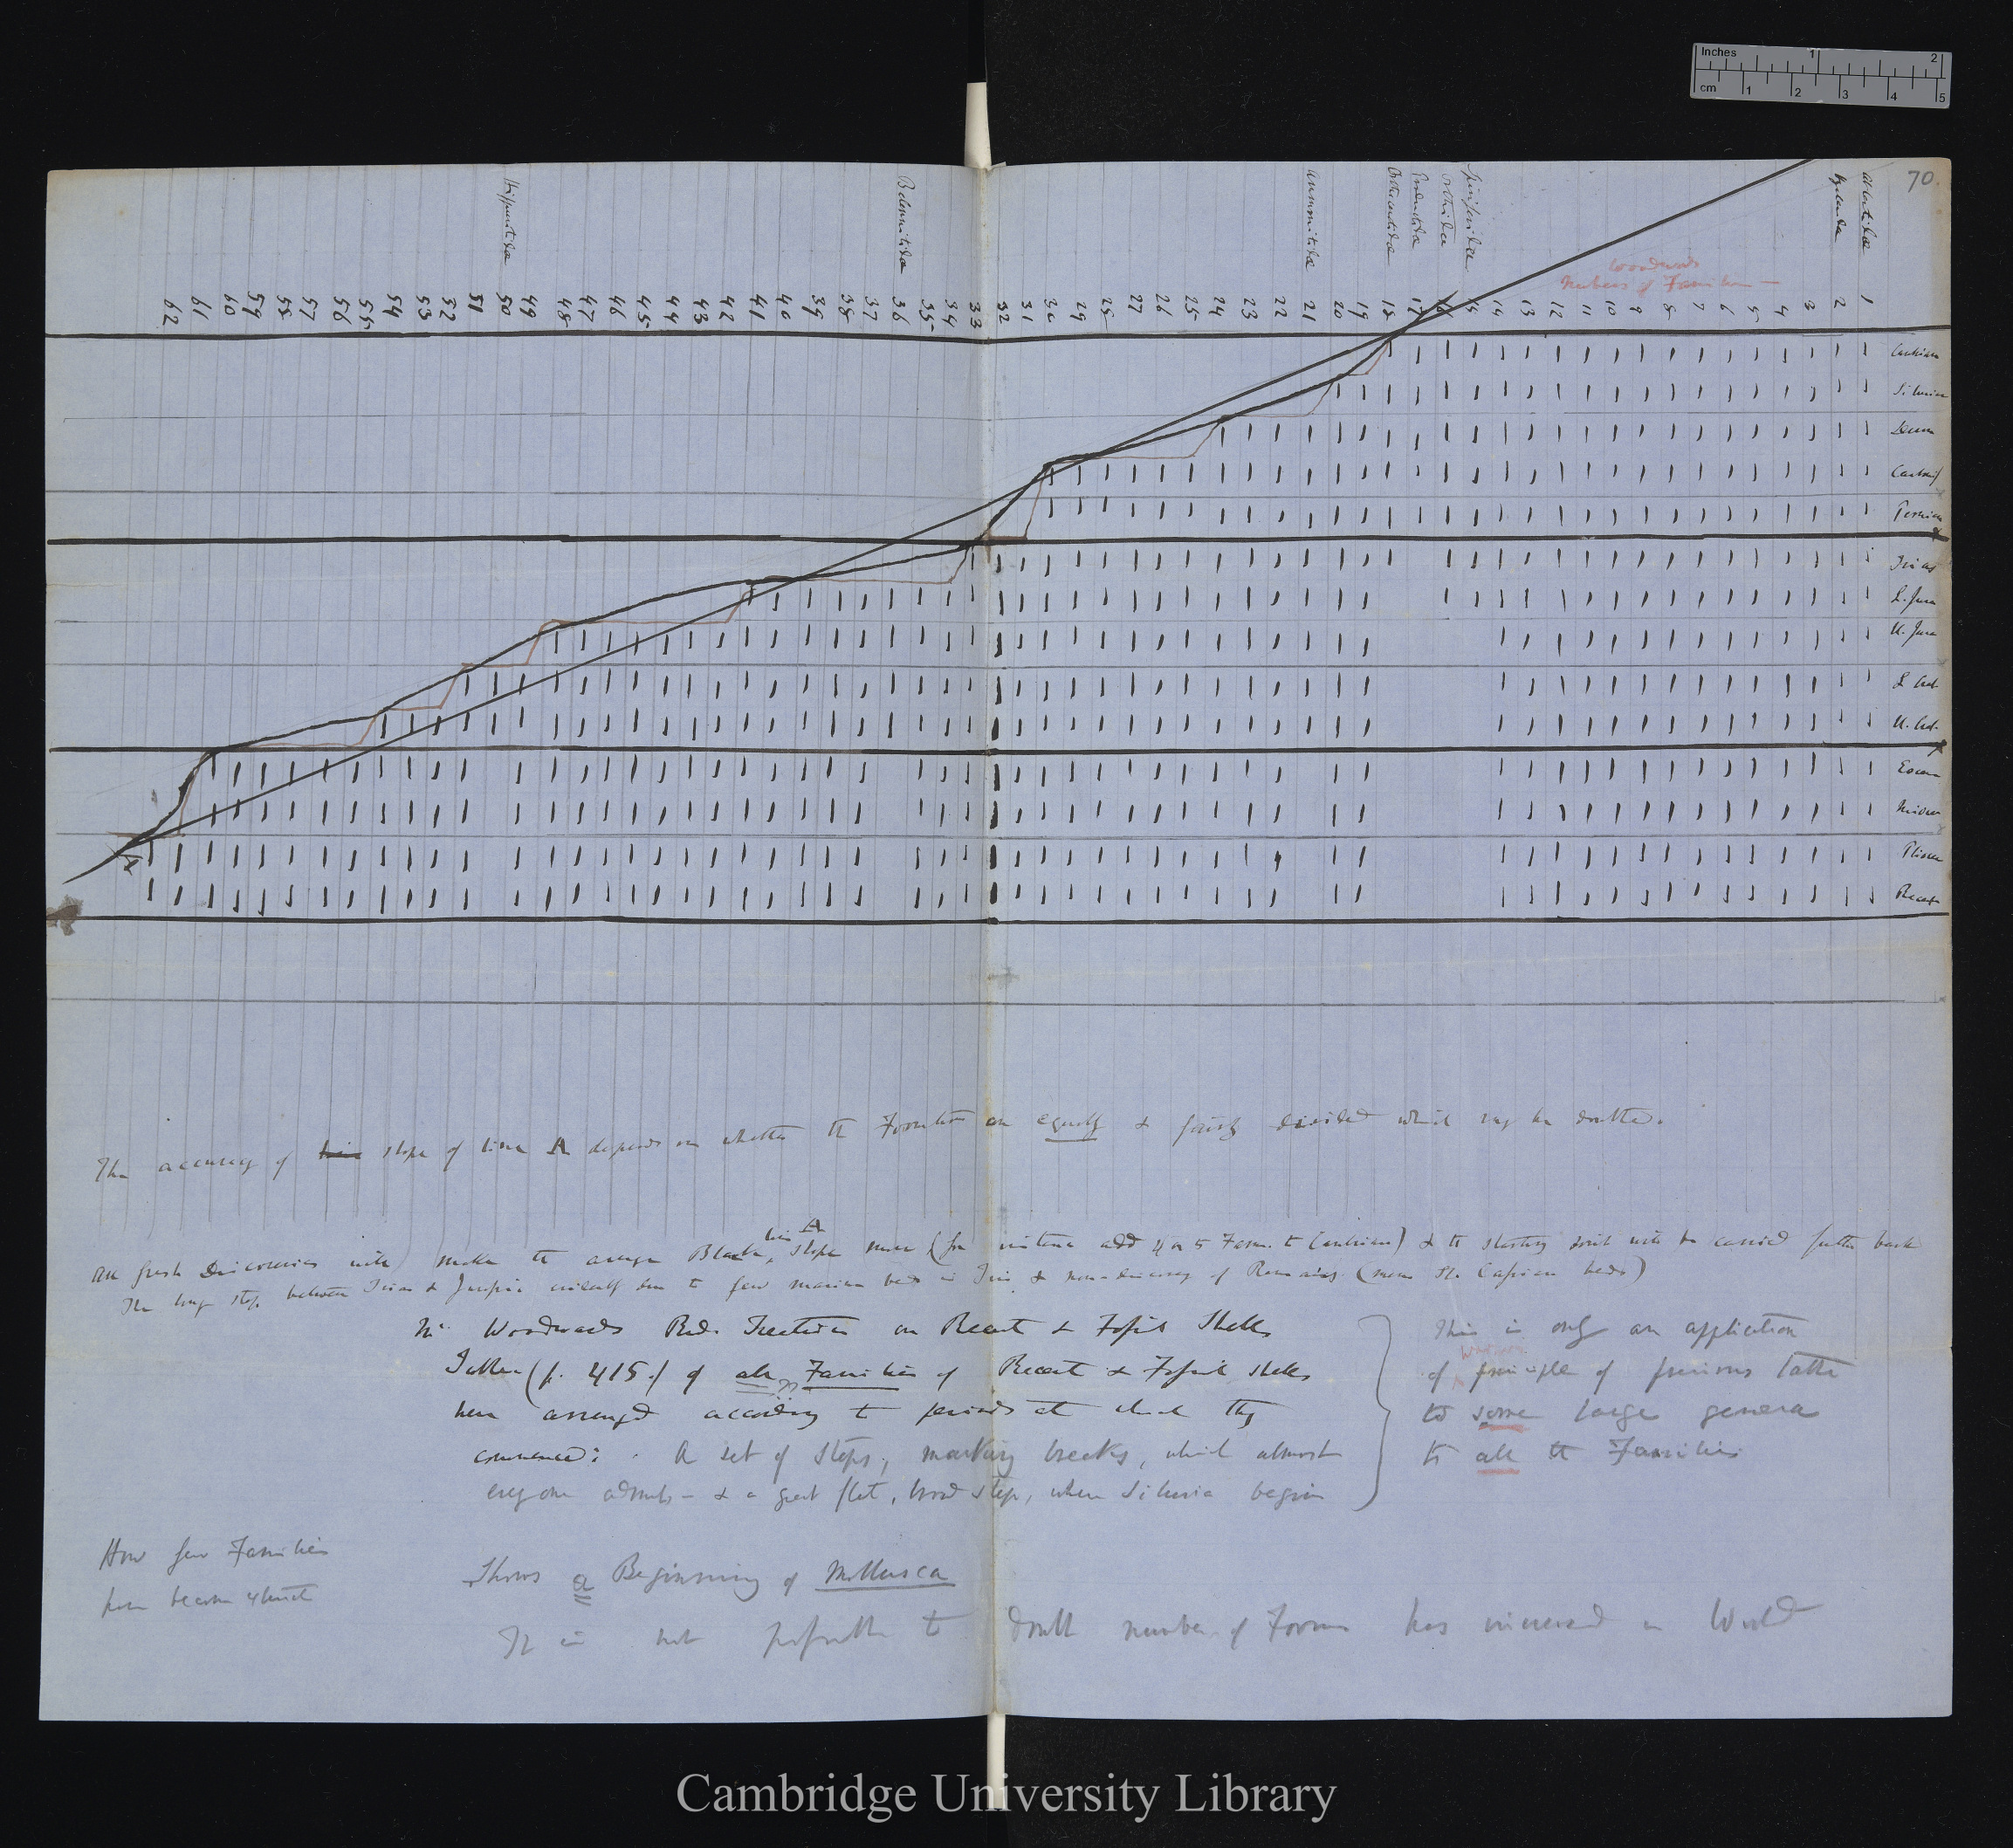 Inches 1 2
cm 1 2 3 4 5
70.
Hippuritidæ Belemnitidæ Ammonitidæ Orthoceratidæ Productidæ Orthidæ Spiriferidæ Hyaleidæ Atlantidæ
Woodwards
Numbers of Families —
62 61 60 59 58 57 56 55 54 53 52 51 50 49 48 47 46 45 44 43 42 41 40 39 38 37 36 35 34 33 32 31 30 29 28 27 26 25 24 23 22 21 20 19 18 17 16 15 14 13 12 11 10 9 8 7 6 5 4 3 2 1
Cambrian
Silurian
Devon
Carbonif
Permian
Trias
L. Jura
U. Jura
L Cret.
U. Cret.
Eocene
Miocene
Pliocene
Recent
A
The accuracy of slope of line A depends on whether the Formations are equally & fairly divided which may be doubted.
line A
All fresh Discoveries will make the average Black, slope more (for instance add 4 or 5 Fam. to Cambrian) & the starting point will be carried further back
The long step between Trias & Jurassic evidently due to few marine beds in Trias & non-discovery of Remains. (more St. Cassian beds)
Mr Woodwards Rud. Treatise on Recent & Fossil Shells
Table (p. 415.) of all Families of Recent & Fossil shells
here arranged according to periods at which they
commenced: A set of steps, marking breaks, which almost
every one admits — & a great flat, broad step, where Siluria begins
This is only an application
of principle of previous table
to some large genera
to all the Families
How few Families
have become extinct
Shows a Beginning of Mollusca
It is not possible to doubt number of Forms has increased in World
Cambridge University Library